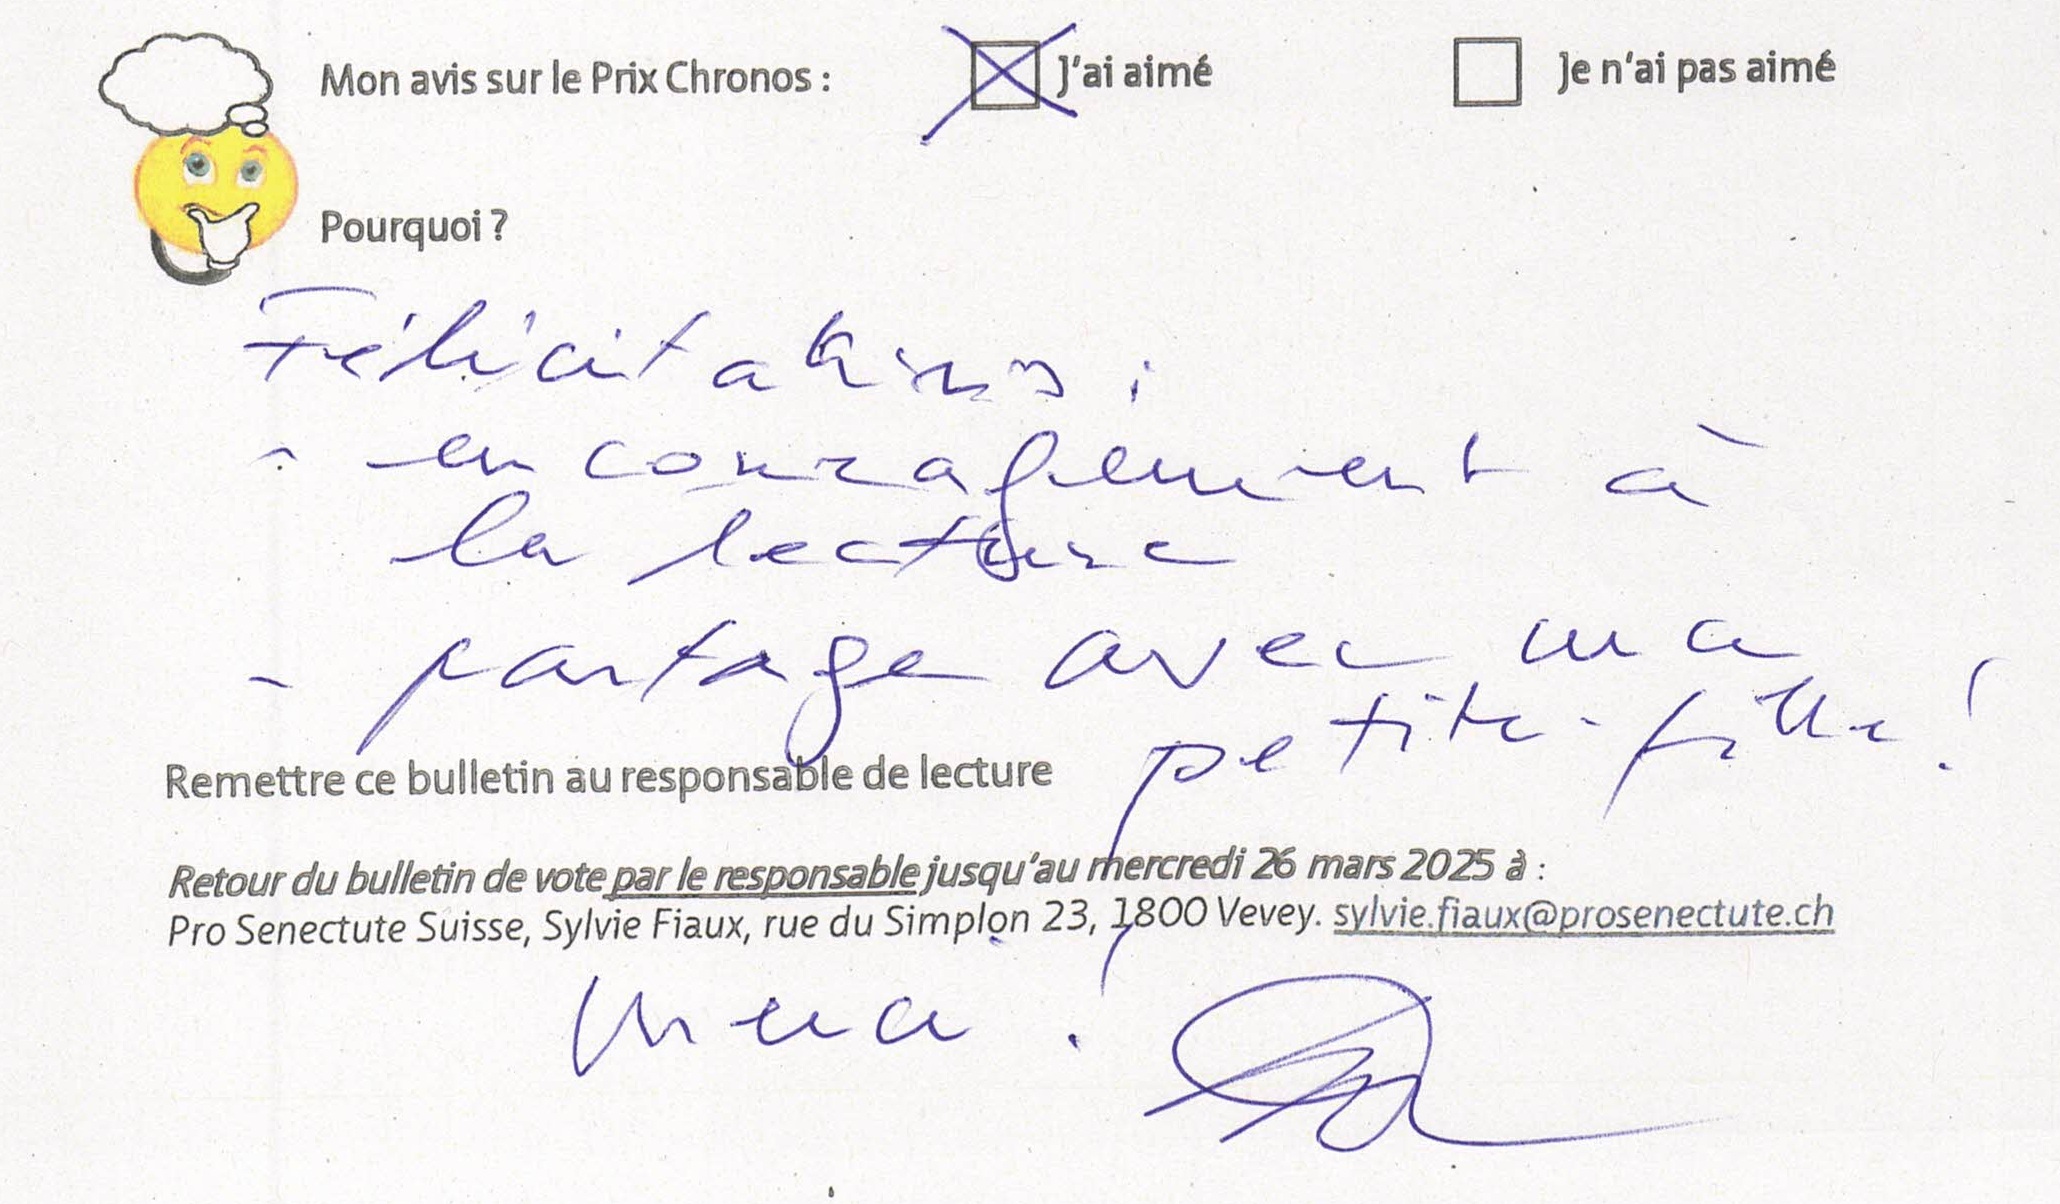 Mon avis sur le Prix Chronos : J'ai aimé Je n'ai pas aimé
Pourquoi ?
Félicitations :
- encouragement à
la lecture
- partage avec ma
petite-fille !
Remettre ce bulletin au responsable de lecture
Retour du bulletin de vote par le responsable jusqu'au mercredi 26 mars 2025 à :
Pro Senectute Suisse, Sylvie Fiaux, rue du Simplon 23, 1800 Vevey. sylvie.fiaux@prosenectute.ch